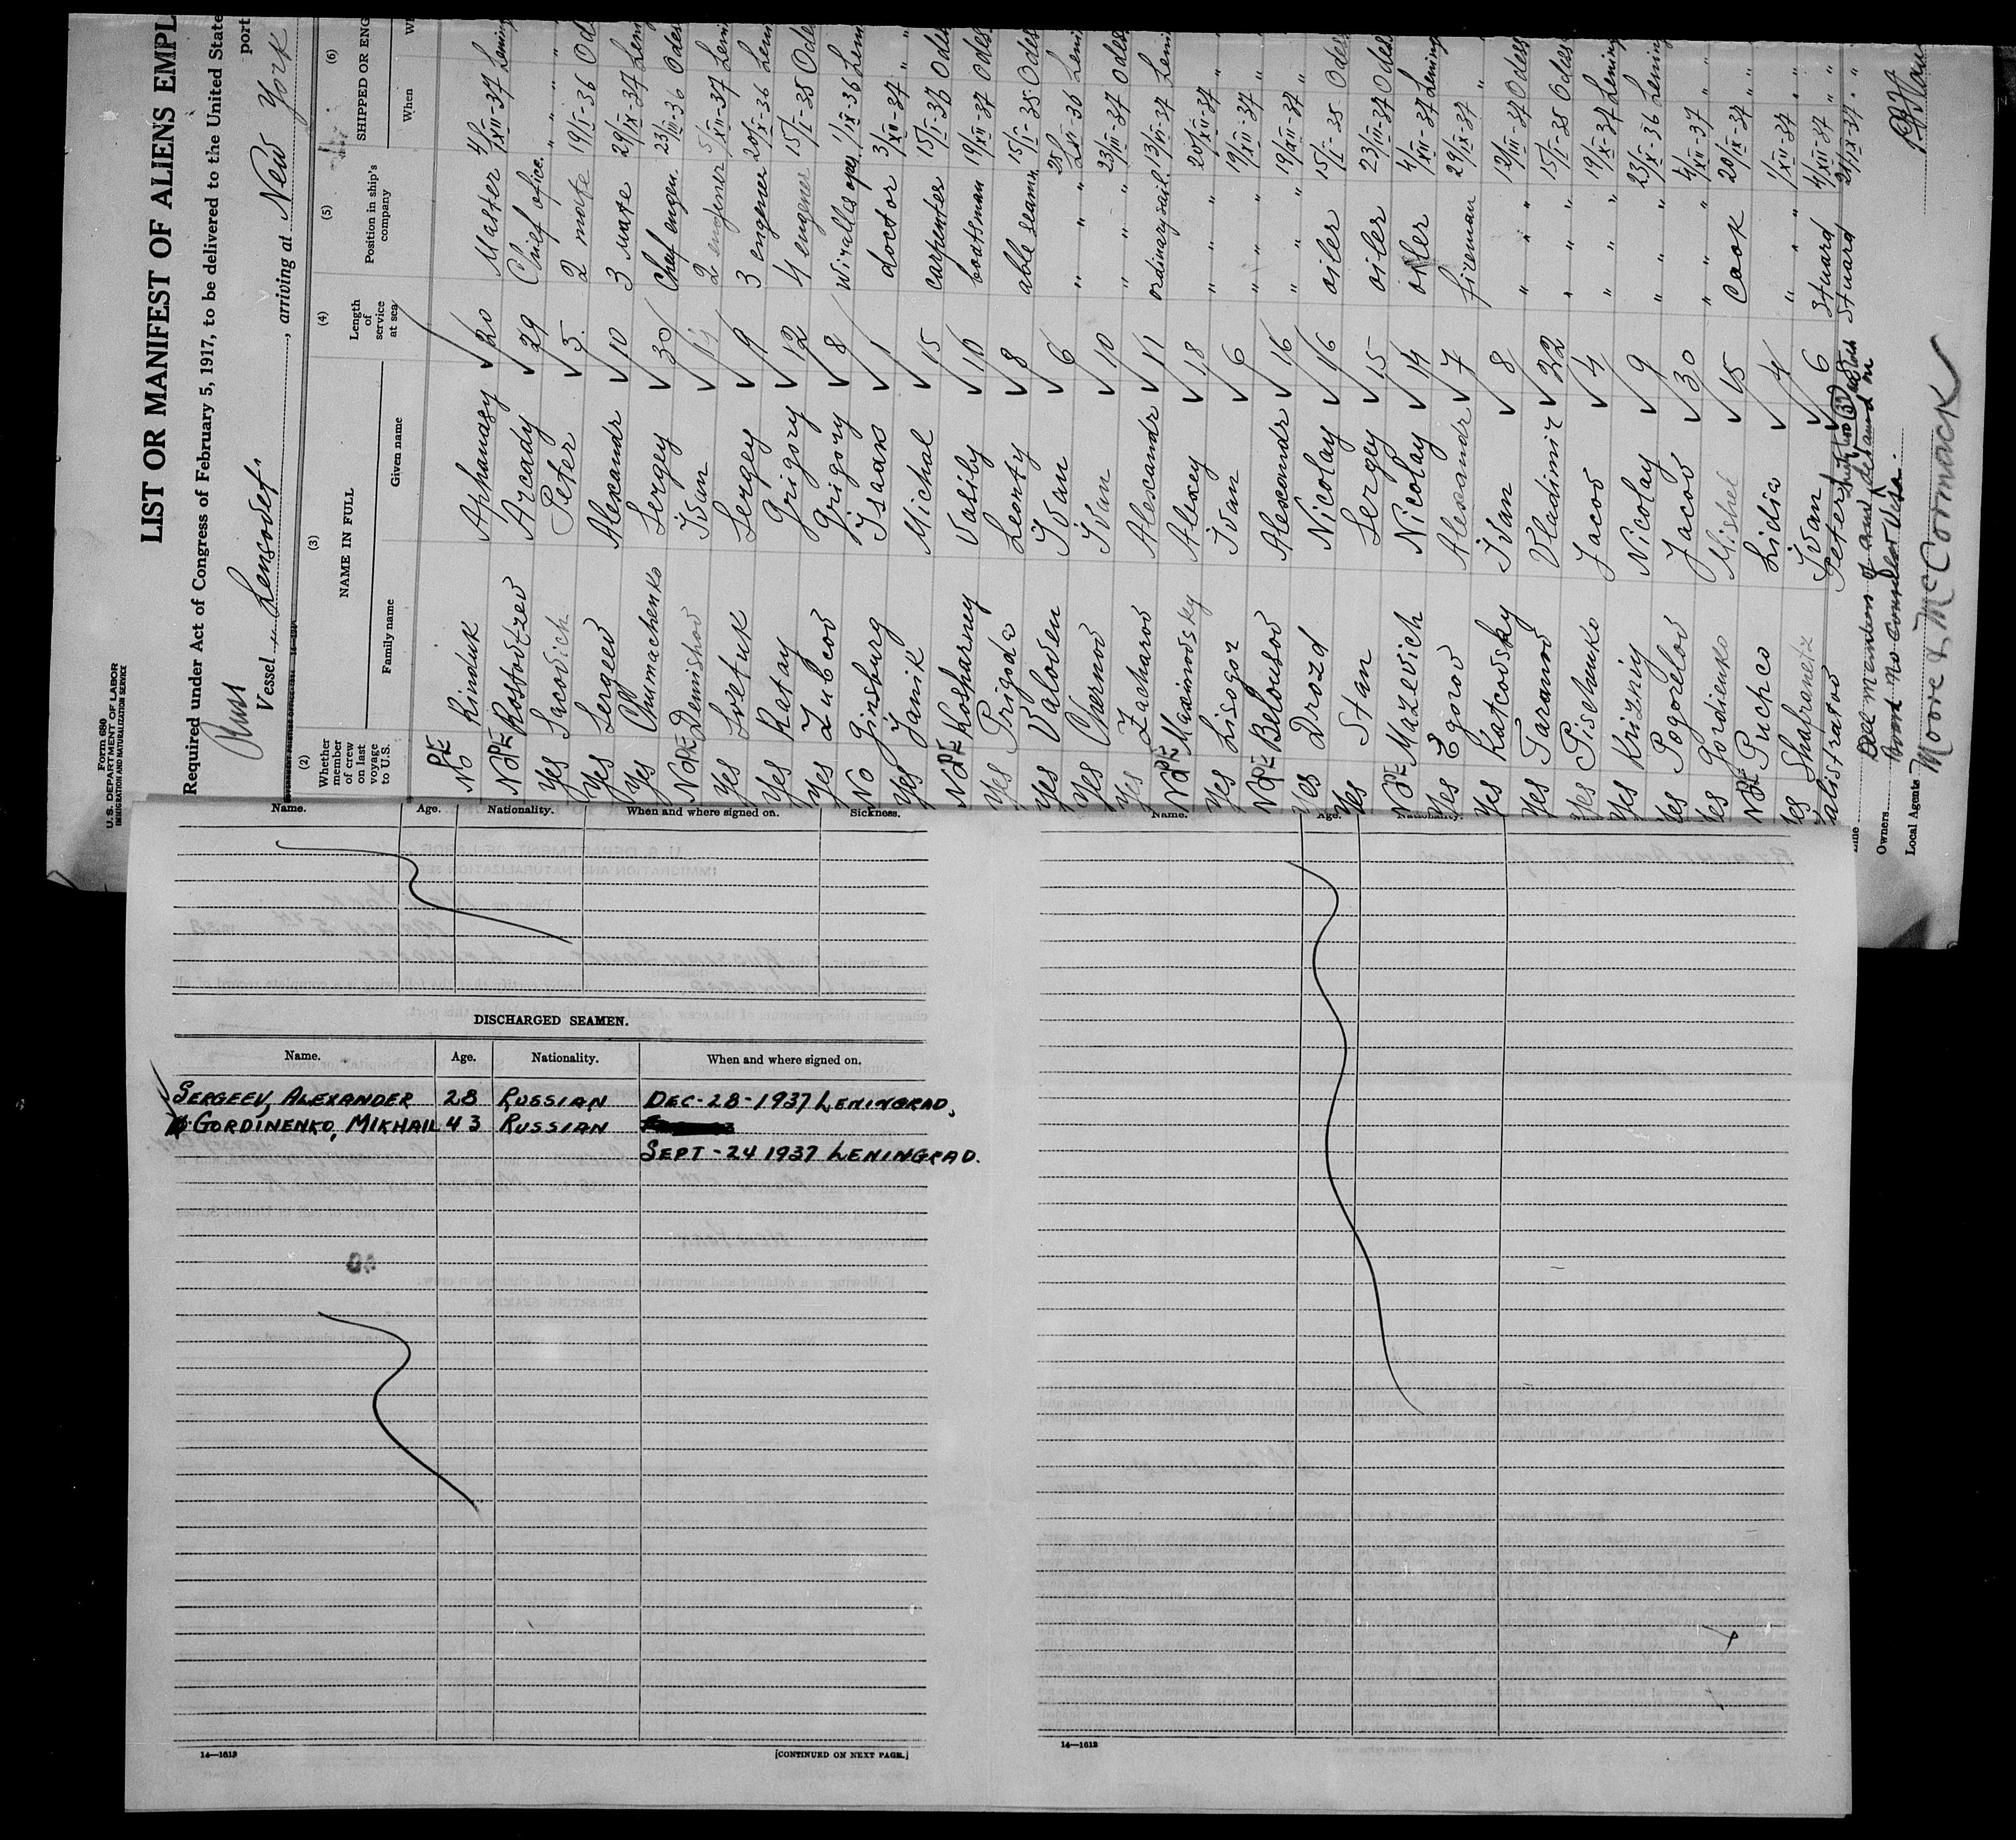 Form 680
U. S. DEPARTMENT OF LABOR
IMMIGRATION AND NATURALIZATION SERVICE
LIST OR MANIFEST OF ALIENS EMPL
Required under Act of Congress of February 5, 1917, to be delivered to the United State
Russ
Vessel Lensovet, arriving at New York port
(2) (3) (4) (5) (6)
Whether member of crew on last voyage to U.S. NAME IN FULL Length of service at sea Position in ship's company SHIPPED OR ENG
Family name Given name When
No PE Rinduk Aphanasy 20 Master 4/XII-37 Lening
No PE Rostovtzev Arcady 29 Chief ofice. " "
Yes Sacovich Peter 5 2 mate 19/I-36 Od
Yes Sergeev Alexandr 10 3 mate 29/IX-37 Lenin
Yes Chumachenko Sergey 30 Chef engen. 23/III-36 Odes
No PE Demishov Ivan 2 engener 5/XII-37 Leni
Yes Svetuk Sergey 9 3 engener 20/X-36 Leni
Yes Ratay Grigory 12 4 engener 15/I-35 Ode
Yes Zubcov Grigory 8 wiralles oper. 1/IX-36 Leni
No Ginsburg Isaak 1 doctor 3/XII-37 "
Yes Janik Michal 15 carpenter 15/I-36 Odes
No PE Kosharney Vasiliy 10 boatsman 19/XII-37 Odes
Yes Prigoda Leonty 8 able seamn 15/I-35 Odes
Yes Valoven Ivan 6 " " Leni
Yes Chernov Ivan 10 " " 23/III-37 Odes
Yes Zacharov Alexandr 11 ordinary sail. 13/VI-37 Leni
No PE Maximovsky Alexey 18 " " 20/XII-37 "
Yes Lisogor Ivan 6 " " 19/XII-37 "
No PE Belousov Alexandr 16 " " 19/XII-37 "
Yes Drozd Nicolay 16 oiler 15/I-35 Odes
Yes Stan Sergey 15 oiler 23/III-37 Odes
No PE Mazevich Nicolay 14 oiler 4/XII-37 Lening
Yes Egorov Alexandr 7 fireman 29/X-37 "
Yes Katcovsky Ivan 8 " " 12/III-37 Odes
Yes Taranov Vladimir 22 " " 15/I-35 Odes
Yes Pisemenko Jacov 4 " " 19/X-37 Lening
Yes Krizniy Nicolay 9 " " 23/X-36 Lening
Yes Pogorelov Jacov 30 " " 4/XII-37 "
Yes Gordienko Mishel 15 Cook 20/IX-37 "
No PE Puchco Lidia 4 " " 1/XII-37 "
Yes Shafranetz Ivan 6 Stuard 4/XII-37 "
Calistratov Peter Stuard 24/IX-37 "
All members of and on
board no Consular Visa.
Line
Owners
Local Agents Moore & McCormack
Name. Age. Nationality. When and where signed on. Sickness.
DISCHARGED SEAMEN.
Name. Age. Nationality. When and where signed on.
SERGEEV, ALEXANDER 28 RUSSIAN DEC-28-1937 LENINGRAD.
GORDINENKO, MIKHAIL 43 RUSSIAN
SEPT-24 1937 LENINGRAD.
14—1613 [CONTINUED ON NEXT PAGE.]
Name. Age. Nationality.
14—1613